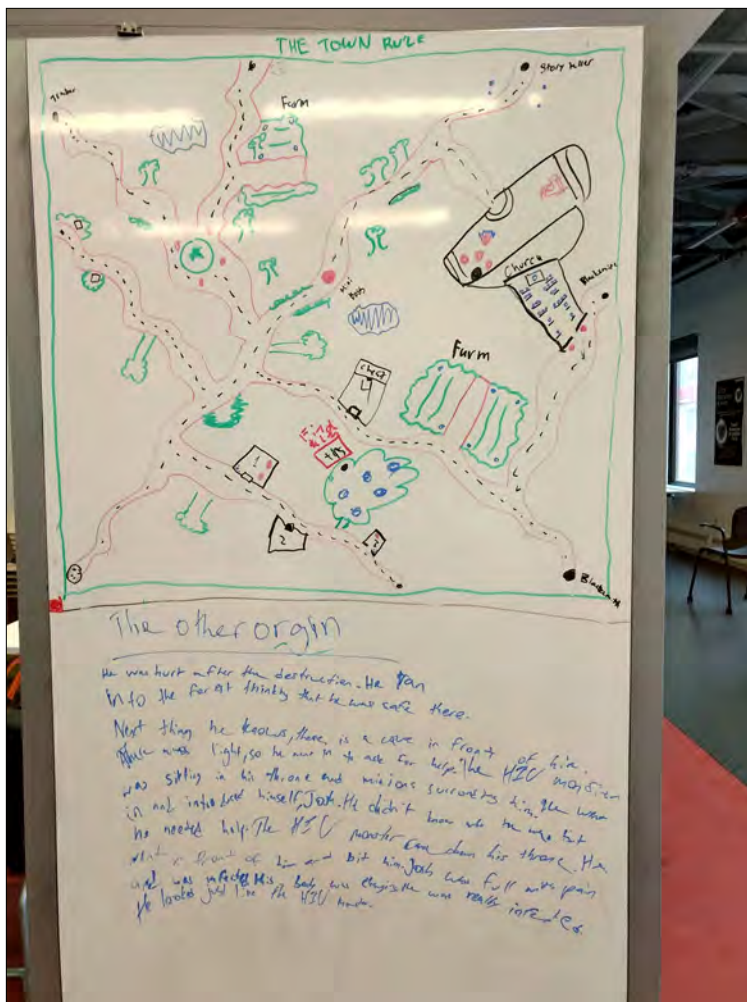 THE TOWN RULE
Story teller
Farm
Church
Farm
chef
4
1
2
The other orgin
He was hurt after the destruction. He ran
into the forest thinking that he was safe there.
Next thing he knows, there is a cave in front of him.
There was light, so he went in to ask for help. The HIV
was sitting in his throne and minions surronding him. He went
in and himself, Josh. He didn't know who he was but
he needed help. The HIV monster came down his throne. He
went in front of him and bit him. Josh was full with pain
and was infected. His body was He was really
He looked just like the HIV